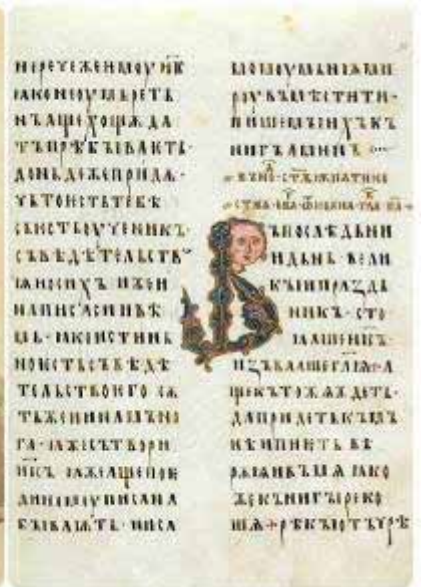 нереуежеѥмоуис҃ъ
ꙗконеоумьреть
нъащехощѫда
тъпрѣбъіваѥть
доньдежепридѫ·
чьтоѥстьтебѣ
сьѥстьоученикъ·
съвѣдѣтельств
ꙗи осихъ ижеи
написасиꙗвь
сь·ꙗкоистинь
ноѥстьсъвѣдѣ
тельствоѥго сѫ
тъжеинꙗмъно
га·ꙗжесътвори
ис҃ъ ꙗжеащепоѥ
диномоуписана
бъіваѭть·ниса
момоумьнѭми
роувъмѣстити·
пишемъіихъкъ
нигъаминъ
Въпослѣдьни
идьнь вели
къіипраздь
никъ·сто
ꙗашеис҃ъ·
изъвашегл҃ѧ·а
щекътожѧждеть·
дапридетькъмъ
нѣипиѥть вѣ
роуѧивъмѧ ꙗко
жекънигъіреко
шѧ+рѣкъіотъчрѣ